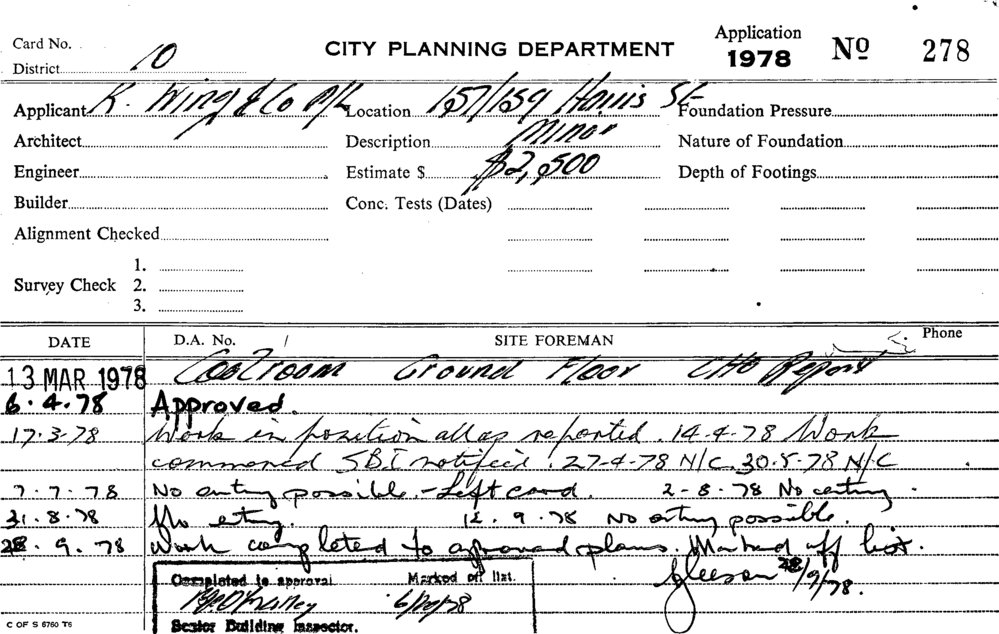 Card No.
District 10
CITY PLANNING DEPARTMENT
Application
1978 Nº 278
Applicant K. Wing & Co P/L Location 157/159 Harris St Foundation Pressure
Architect Description Minor Nature of Foundation
Engineer Estimate $ $2,500 Depth of Footings
Builder Conc. Tests (Dates)
Alignment Checked
1.
Survey Check 2.
3.
DATE D.A. No. / SITE FOREMAN Phone
13 MAR 1978 Coolroom Ground Floor CHO Report
6.4.78 Approved.
17.3.78 Work in position all as reported. 14-4-78 Work
commenced SBI notified. 27-4-78 N/C. 30.5.78 N/C
7.7.78 No entry possible. - Left card. 2-8-78 No entry.
31.8.78 No entry. 12.9.78 No entry possible.
28.9.78 Work completed to approved plans. Marked off list.
Gleeson 28/9/78.
Completed to approval Marked off list.
6/10/78
Senior Building Inspector.
C OF S 6760 T6